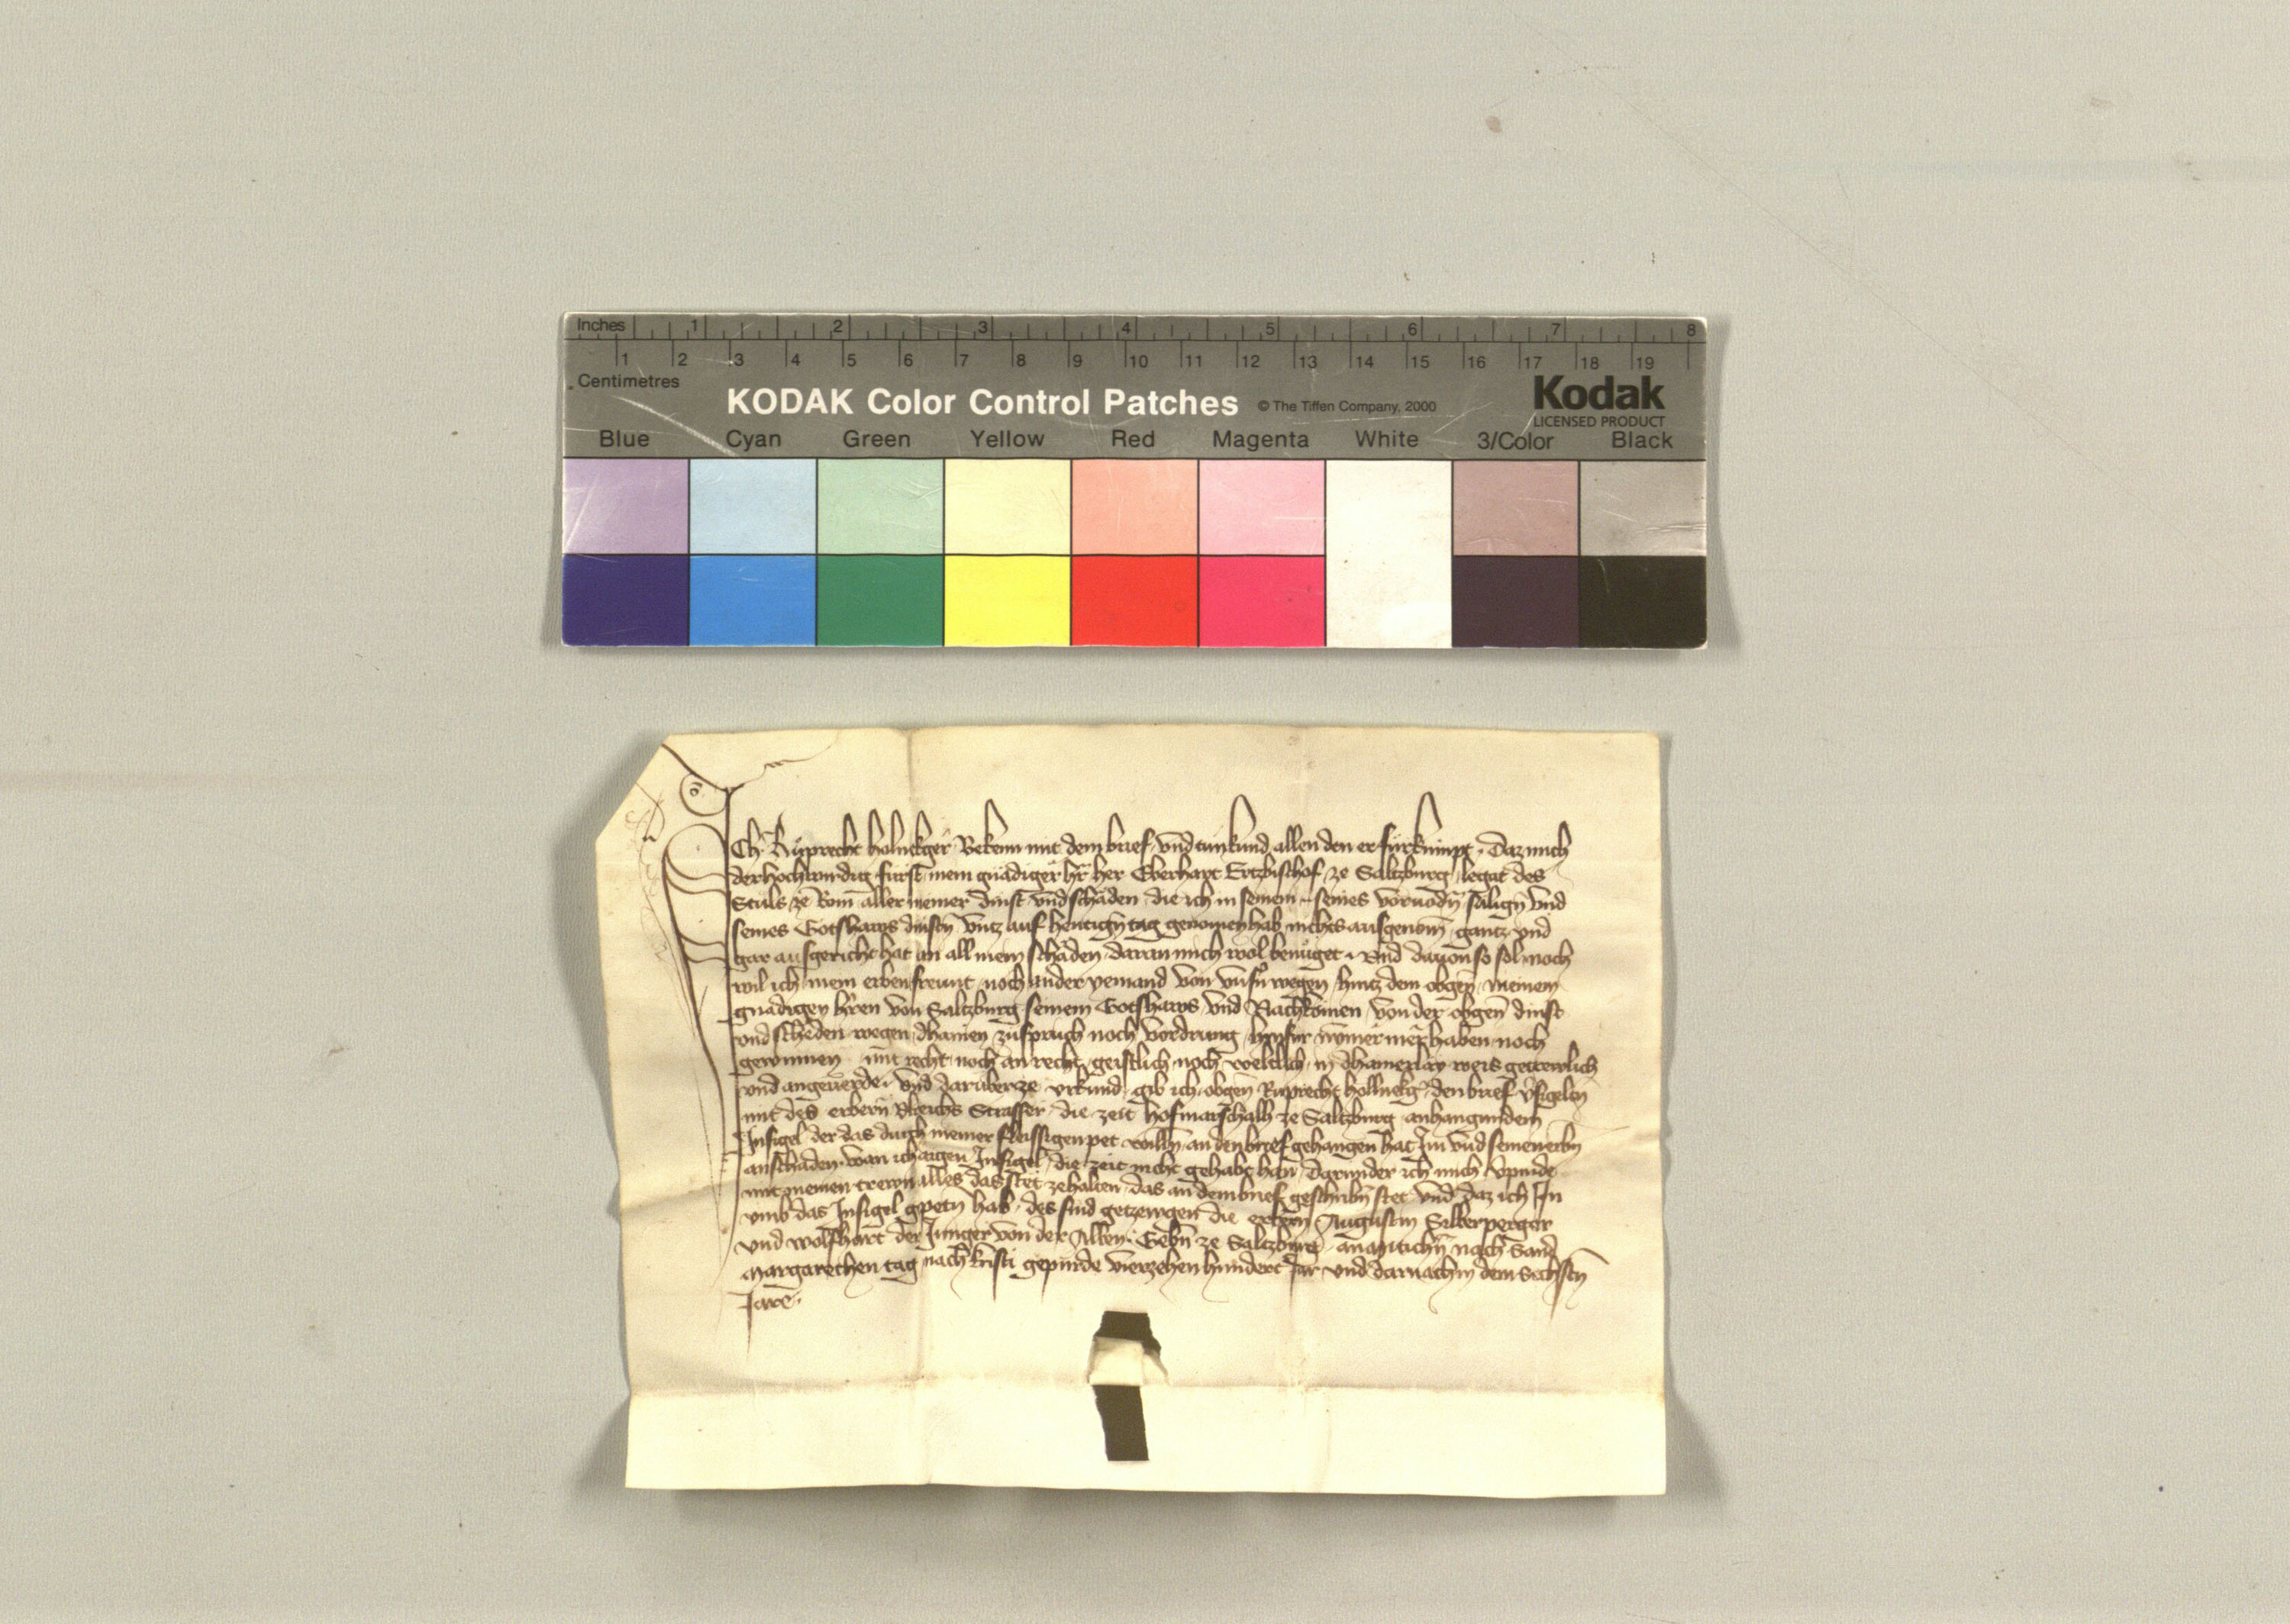 Inches 1 2 3 4 5 6 7 8
1 2 3 4 5 6 7 8 9 10 11 12 13 14 15 16 17 18 19
Centimetres
KODAK Color Control Patches © The Tiffen Company, 2000 Kodak
LICENSED PRODUCT
Blue Cyan Green Yellow Red Magenta White 3/Color Black
Ich Ruprecht holnekger Bekenn mit dem brief vnd tun kund allen den er fürkumpt, Daz mich
der hochwirdig fürst mein gnädiger hr̄ her Eberhart Ertzbischof ze Saltzburg legat des
Stuls ze Rom aller meiner dinst vnd schäden die ich in seinem seines voruodn̄ sälign̄ vnd
seines Gotshaws dinstn̄ vntz auf hewtign̄ tag genomen hab nichts ausgenom̄ gantz vnd
gar ausgericht hat an all mein schäden daran mich wol benüget. Vnd dauon so sol noch
wil ich mein erben frewnt noch ander yemand von vnsn̄ wegen hintz dem obgen̄ meinem
gnädigen hr̄en von Saltzburg seinem Gotshaws vnd Nachkomen von der obgen̄ dinst
vnd scheden wegen dhainen zuspruch noch vordrung hinfür nymer mer haben noch
gewinnen mit recht noch an recht geistlich noch weltlich in dhainerlay weis getrewlich
vnd angeuerde. Vnd darüber ze vrkund gib ich obgen̄ Ruprecht hollnekḡ den brief v̄sigelten
mit des erbern Vlreichs Strasser die zeit hofmarschalh ze Saltzburg anhangundem
Insigel der das durch meiner fleissigen pet willn̄ an den brief gehangen hat Im vnd seinen erbn̄
an schaden wan ich aigen Insigel die zeit nicht gehabt han darunder ich mich v̄pinde
mit meinen trewn alles das stet ze halten das an dem brief geschribn̄ stet vnd daz ich In
vmb das Insigel gpetn hab, des sind getzewgen die erbern Augustin Silberperger
vnd wolfhart der Junger von der Alben. Gebn̄ ze Saltzburg an nach Sand
Margarethen tag nach kristi gepurde vierzehenhundert Jar vnd darnach in dem Sechstn̄
Jare.